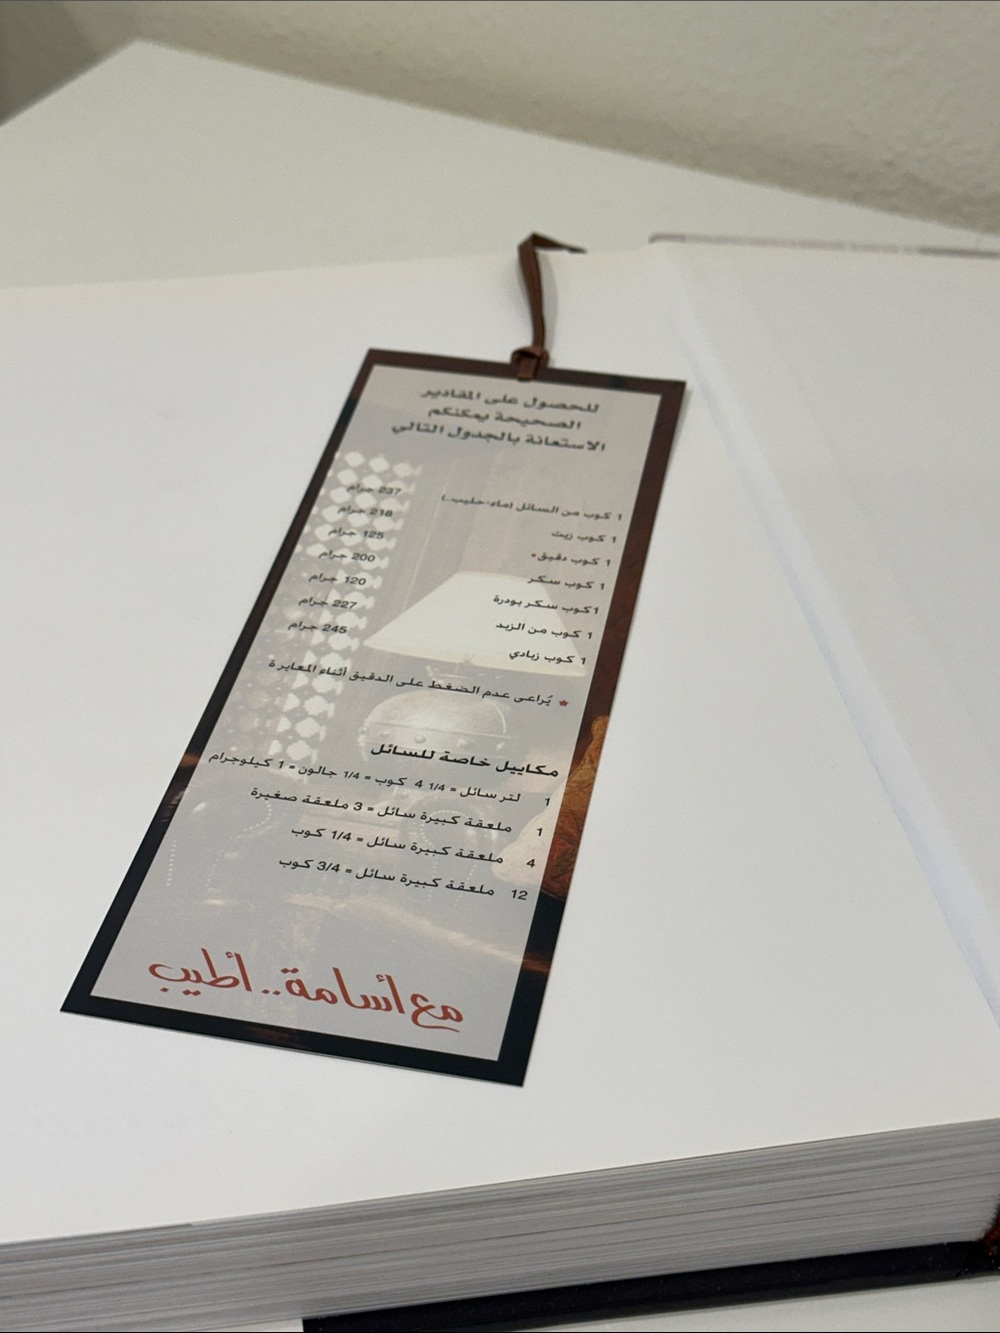 للحصول على المقادير
الصحيحة يمكنكم
الاستعانة بالجدول التالي
1 كوب من السائل (ماء-حليب..) 237 جرام
1 كوب زيت 218 جرام
1 كوب دقيق* 125 جرام
1 كوب سكر 200 جرام
1 كوب سكر بودرة 120 جرام
1 كوب من الزبد 227 جرام
1 كوب زبادي 245 جرام
* يُراعى عدم الضغط على الدقيق أثناء المعايرة
مكاييل خاصة للسائل
1 لتر سائل = 1/4 4 كوب = 1/4 جالون = 1 كيلوجرام
1 ملعقة كبيرة سائل = 3 ملعقة صغيرة
4 ملعقة كبيرة سائل = 1/4 كوب
12 ملعقة كبيرة سائل = 3/4 كوب
مع أسامة.. أطيب